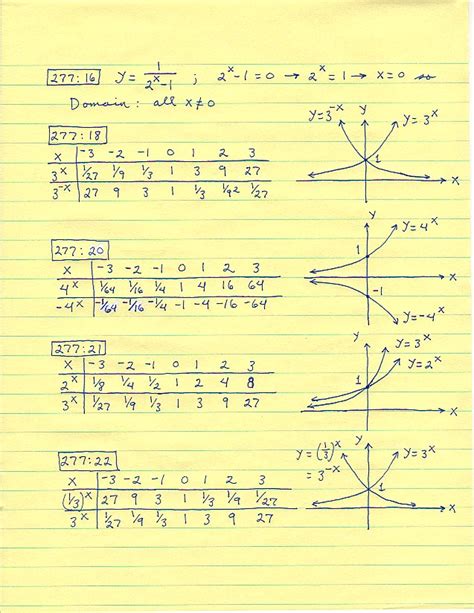 277:16 y = 1/(2^x-1) ; 2^x-1=0 → 2^x=1 → x=0 so
Domain: all x≠0
277:18
x | -3 -2 -1 0 1 2 3
3^x | 1/27 1/9 1/3 1 3 9 27
3^-x | 27 9 3 1 1/3 1/92 1/27
y=3^-x y y=3^x
1
x
277:20
x | -3 -2 -1 0 1 2 3
4^x | 1/64 1/16 1/4 1 4 16 64
-4^x | -1/64 -1/16 -1/4 -1 -4 -16 -64
y y=4^x
1
x
-1
y=-4^x
277:21
x | -3 -2 -1 0 1 2 3
2^x | 1/8 1/4 1/2 1 2 4 8
3^x | 1/27 1/9 1/3 1 3 9 27
y y=3^x
y=2^x
1
x
277:22
x | -3 -2 -1 0 1 2 3
(1/3)^x | 27 9 3 1 1/3 1/9 1/27
3^x | 1/27 1/9 1/3 1 3 9 27
y=(1/3)^x y y=3^x
=3^-x
1
x